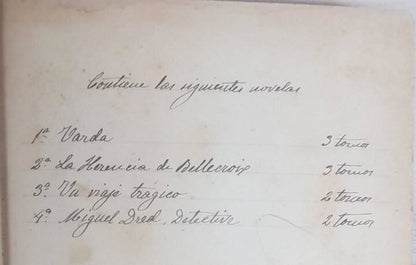 Contiene las siguientes novelas
1ª Varda 3 tomos
2ª La Herencia de Bellecroix 3 tomos
3ª Un viaje trágico 2 tomos
4ª Miguel Dred, Detective 2 tomos